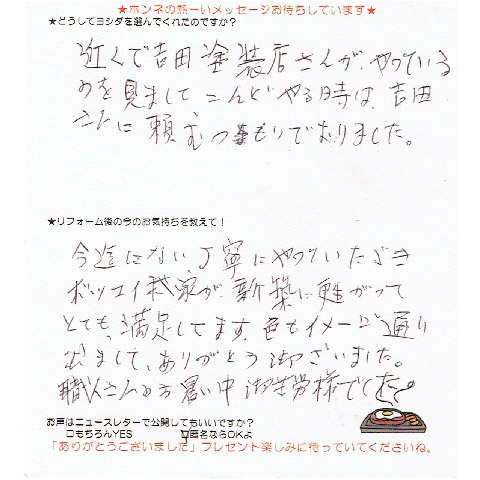 ★ホンネの熱ーいメッセージお待ちしています★
★どうしてヨシダを選んでくれたのですか?
近くで吉田塗装店さんが、やっている
のを見まして こんどやる時は、吉田
さんに頼むつもりでおりました。
★リフォーム後の今のお気持ちを教えて!
今迄にない丁寧にやっていただき
我家が、新築に甦がって
とても、満足してます、色もイメージ通り
まして、ありがとう御ざいました。
職人さんの方 暑い中 御苦労様でした。
お声はニュースレターで公開してもいいですか?
□もちろんYES □匿名ならOKよ
「ありがとうございました」プレゼント楽しみに待っていてくださいね。